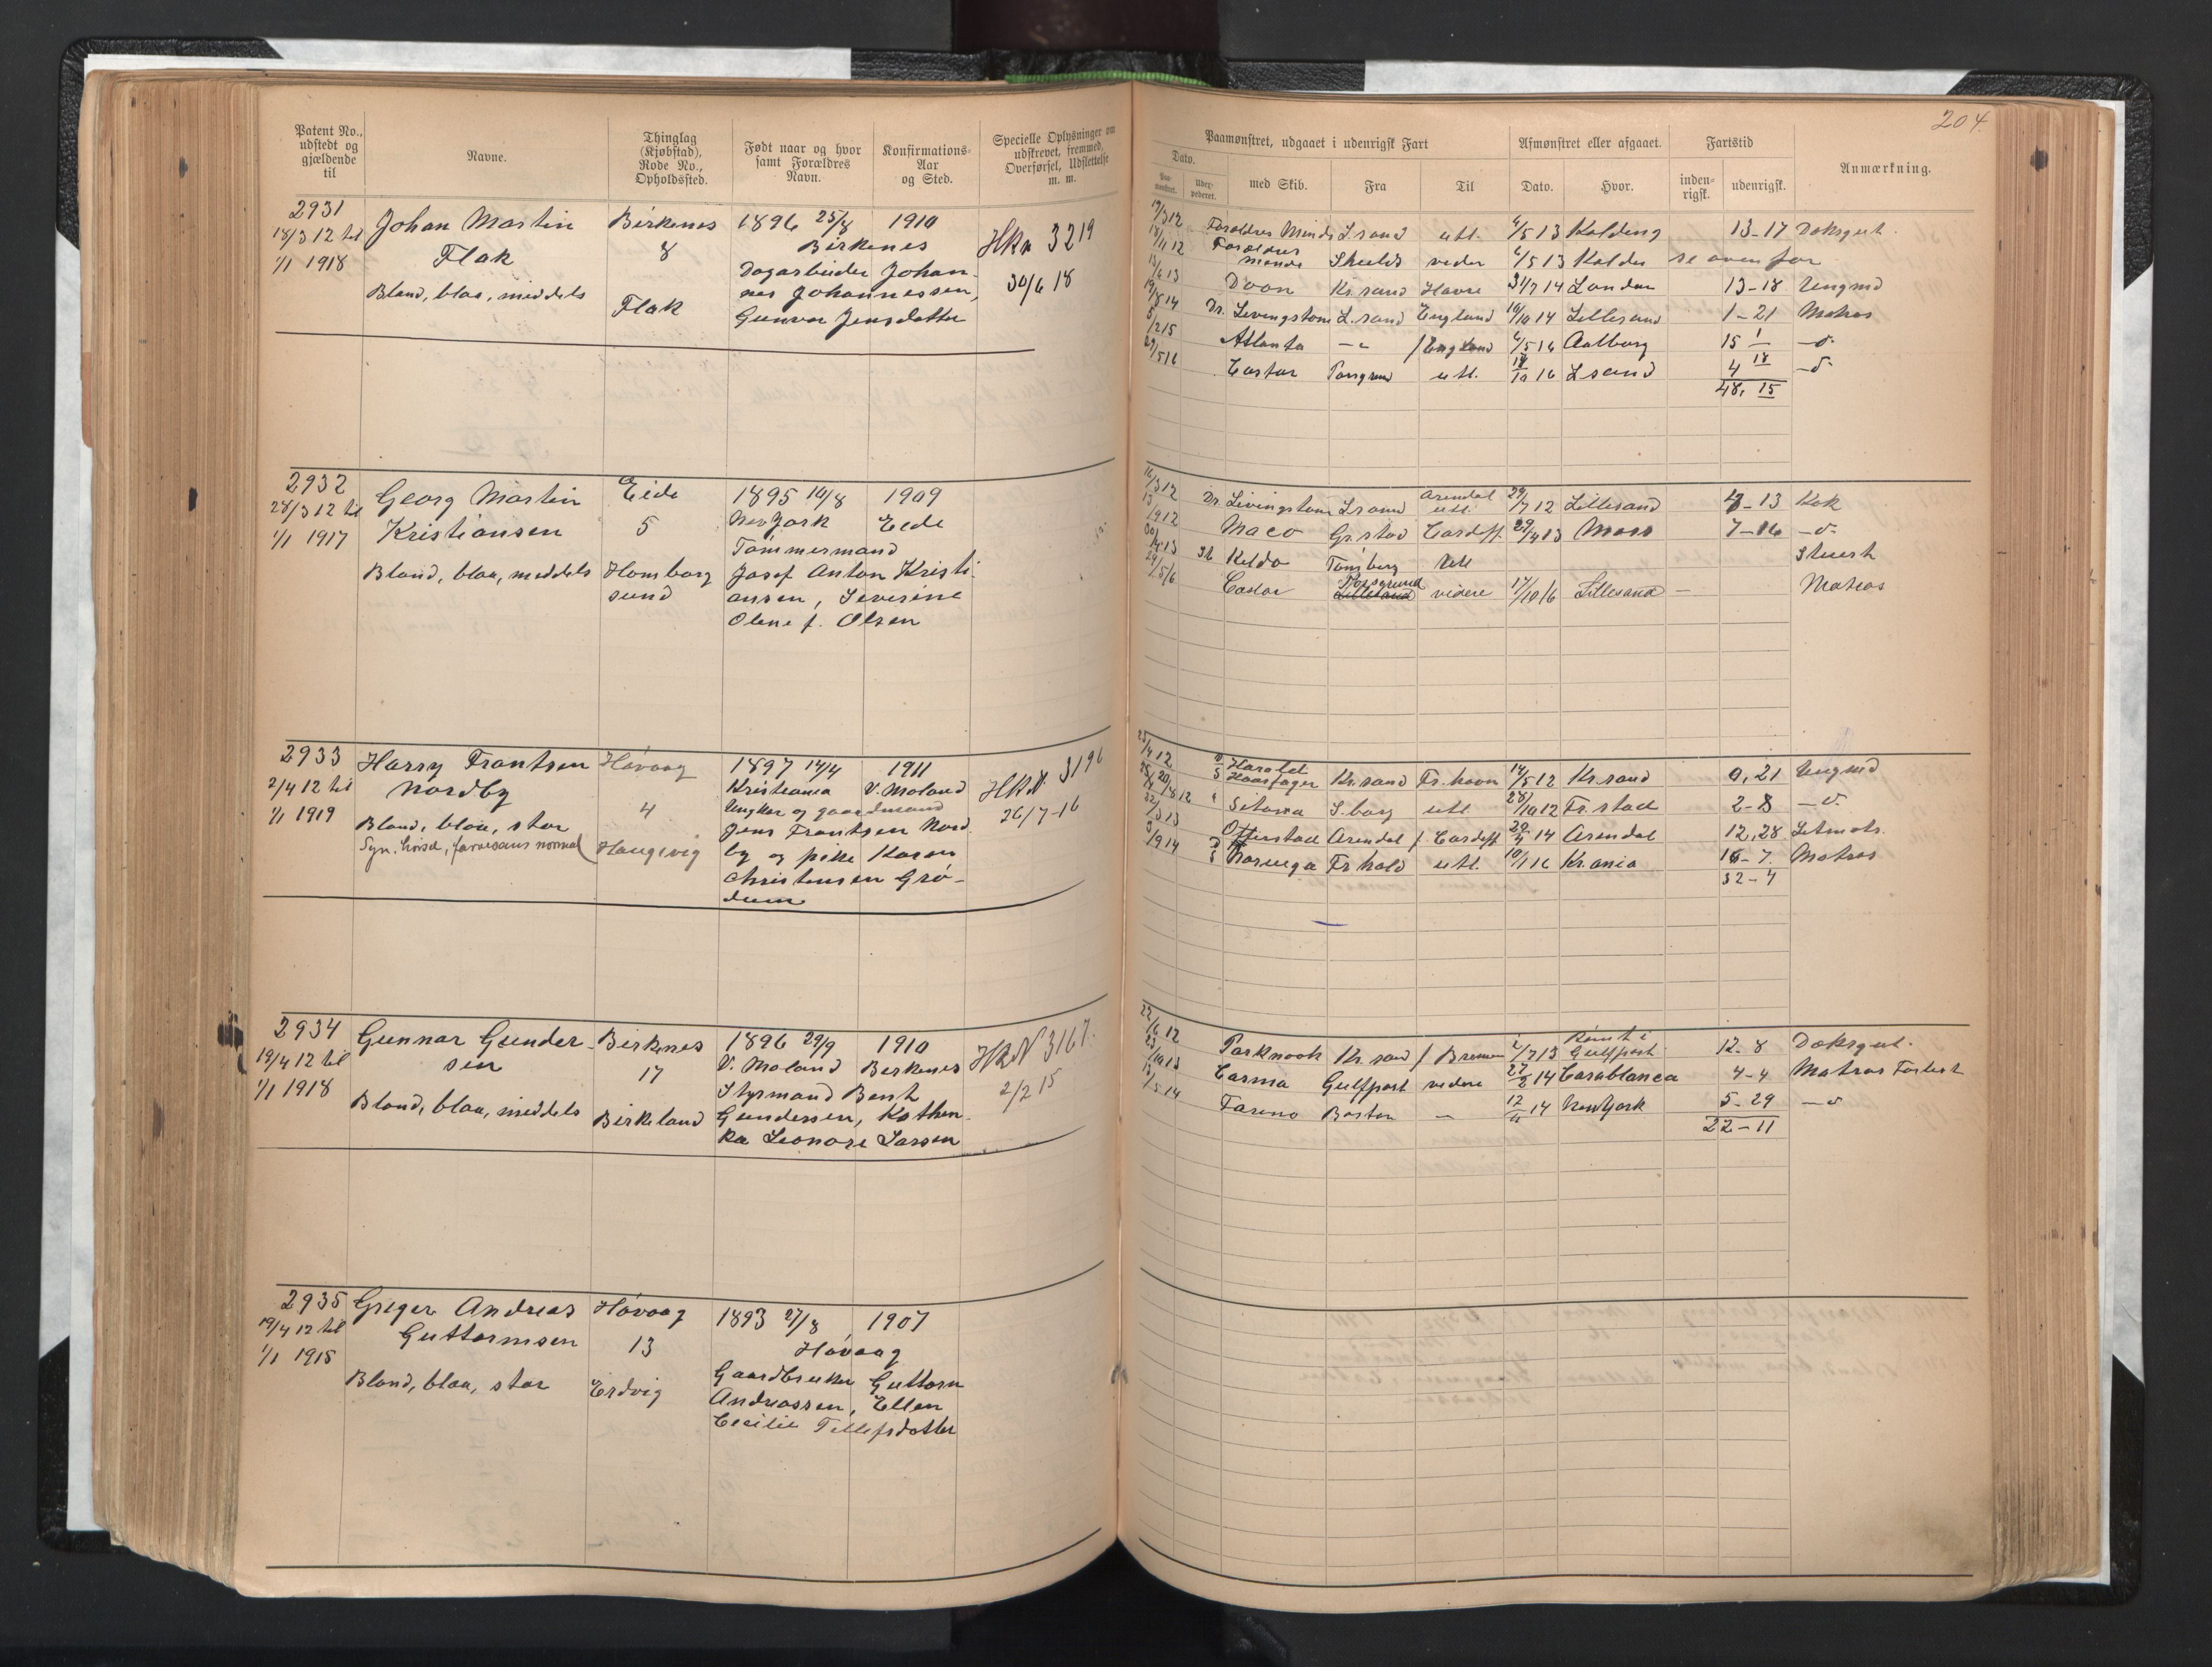 Patent No., udstedt og gjældende til
Navne.
Thinglag (Kjøbstad), Rode No., Opholdssted.
Født naar og hvor samt Forældres Navn.
Konfirmations-Aar og Sted.
Specielle Oplysninger om udskrevet, fremmed, Overførsel, Udslettelse m. m.
2931
18/3 12 til
1/1 1918
Johan Martin
Flak
Blond, blaa, middels
Birkenes
8
Flak
1896 25/8 1910
Birkenes
Dagarbeider Johan-
nes Johannessen,
Gunvor Jensdatter
HKn 3219
30/6 18
2932
28/3 12 til
1/1 1917
Georg Martin
Kristiansen
Blond, blaa, middels
Eide
5
Homborg
sund
1895 10/8 1909
New York Eide
Tømmermand
Josef Anton Kristi-
ansen, Severine
Olene f. Olsen
2933
2/4 12 til
1/1 1919
Harry Frantsen
Nordby
Blond, blaa, stor
Syn. hørsel, farvesans normal
Høvaag
4
Haugevig
1897 14/4 1911
Kristiania V. Moland
Ungkar og gaardmand
Jens Frantsen Nord
by og pike Karen
Christensen Grø-
dum
HKN 3196
26/7-16
2934
19/4 12 til
1/1 1918
Gunnar Gunder-
sen
Blond, blaa, middels
Birkenes
17
Birkeland
1896 29/9 1910
V. Moland Birkenes
Styrmand Bent
Gundersen, Kathin-
ka Leonore Larsen
HKN 3167.
2/2 15
2935
19/4 12 til
1/1 1915
Greger Andreas
Guttormsen
Blond, blaa, stor
Høvaag
13
Erdvig
1893 27/8 1907
Høvaag
Gaardbruker Guttorm
Andreassen, Ellen
Cecilie Tellefsdatter
204.
Paamønstret, udgaaet i udenrigsk Fart
Afmønstret eller afgaaet.
Fartstid
Anmærkning.
Dato.
med Skib.
Fra
Til
Dato.
Hvor.
inden-rigsk.
udenrigsk.
19/3 12 Forældres Minde L.sand utl. 6/5 13 Kolding 13-17 Dæksgut
Forældres
Minde Shields videre 6/5 13 Kolding se ovenfor
Doon Kr.sand Havre 31/7 14 London 13-18 Ungmd
19/8 14 Dr. Levingstone L.sand England 10/10 14 Lillesand 1-21 Matros
5/2 15 Atlanta England 6/5 16 Aalborg 15 1
29/5 16 Castor Porsgrund utl. 18/10 16 L.sand 4 18
48, 15
16/3 12 Dr. Levingstone L.sand Arendal
utl. 29/7 12 Lillesand 4-13 Kok
13/9 12 Maco Gr.stad Cardiff 29/4 13 Moss 7-16
Kelda Tønsberg Utl
Castor Porsgrund
Lillesand videre 17/10 16 Lillesand — Matros
25/4 12 Harald
Haarfager Kr.sand Fr.havn 14/5 12 Kr.sand 0,21 Ungmd
Sitona S.borg utl. 28/10 12 Fr.stad 2-8
22/3 13 Otterstad Arendal Cardiff 29/4 14 Arendal 12,28 Letmatr.
3/9 14 Noruega Fr.hald utl. 10/1 16 Kr.ania 16-7. Matros
32-4
22/6 12 Parknook Kr.sand Bremen 2/7 13 Rømt i
Gulfport 12-8 Dæksgut.
23/10 13 Carma Gulfport videre 27/2 14 Casablanca 4-4 Matros
13/5 14 Boston — New York 5-29
22-11